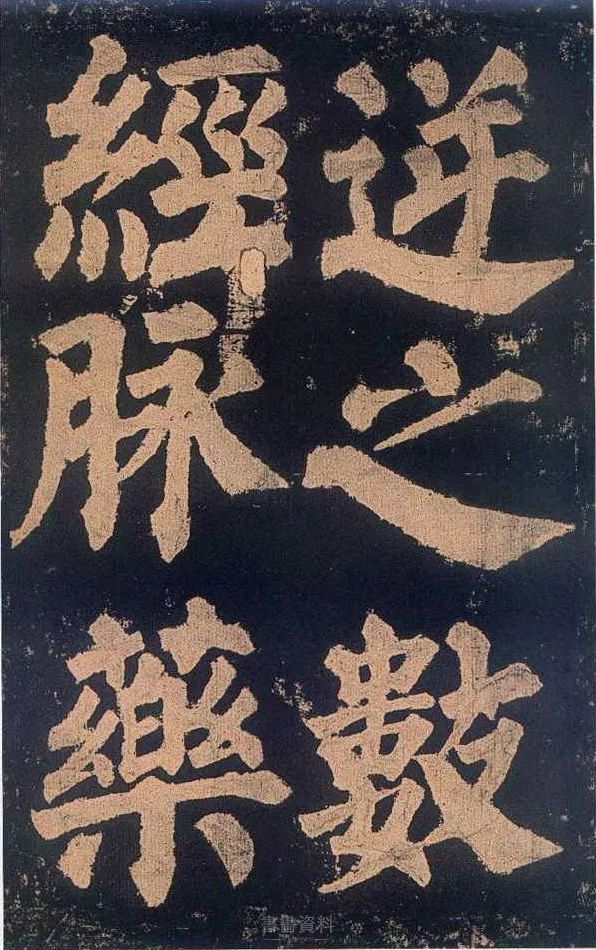 逆之數
經脉藥
書畫資料